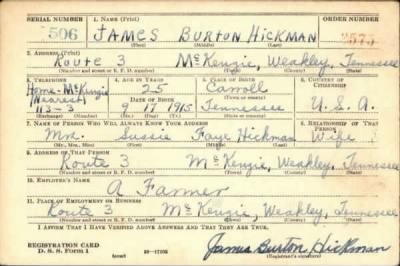 SERIAL NUMBER 1. NAME (Print) ORDER NUMBER
506 JAMES BURTON HICKMAN 2575
(First) (Middle) (Last)
2. ADDRESS (Print)
Route 3 McKenzie, Weakley, Tennessee
(Number and street or R. F. D. number) (Town) (County) (State)
3. TELEPHONE 4. AGE IN YEARS 5. PLACE OF BIRTH 6. COUNTRY OF CITIZENSHIP
Home-McKenzie 25 Carroll
(Nearest) DATE OF BIRTH (Town or county)
113-J 9 17 1915 Tennessee U. S. A.
(Mo.) (Day) (Yr.) (State or country)
7. NAME OF PERSON WHO WILL ALWAYS KNOW YOUR ADDRESS 8. RELATIONSHIP OF THAT PERSON
Mrs. Susie Faye Hickman Wife
(Mr., Mrs., Miss) (First) (Middle) (Last)
9. ADDRESS OF THAT PERSON
Route 3 McKenzie, Weakley, Tennessee
(Number and street or R. F. D. number) (Town) (County) (State)
10. EMPLOYER'S NAME
A Farmer
11. PLACE OF EMPLOYMENT OR BUSINESS
Route 3 McKenzie, Weakley, Tennessee
(Number and street or R. F. D. number) (Town) (County) (State)
I AFFIRM THAT I HAVE VERIFIED ABOVE ANSWERS AND THAT THEY ARE TRUE.
REGISTRATION CARD James Burton Hickman
D. S. S. Form 1 (Registrant's signature)